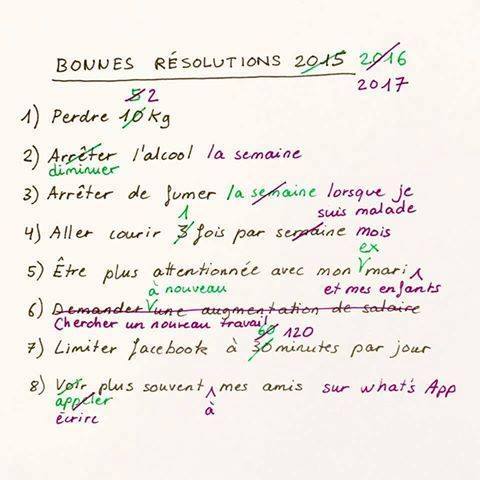 BONNES RÉSOLUTIONS 2015 2016
2017
5 2
1) Perdre 10 Kg
2) Arrêter l'alcool la semaine
diminuer
3) Arrêter de fumer la semaine lorsque je
suis malade
1
4) Aller courir 3 fois par semaine mois
ex
5) Être plus attentionnée avec mon mari
à nouveau et mes enfants
6) Demander une augmentation de salaire
Chercher un nouveau travail
60 120
7) Limiter facebook à 30 minutes par jour
8) Voir plus souvent mes amis sur what's App
appeler à
écrire